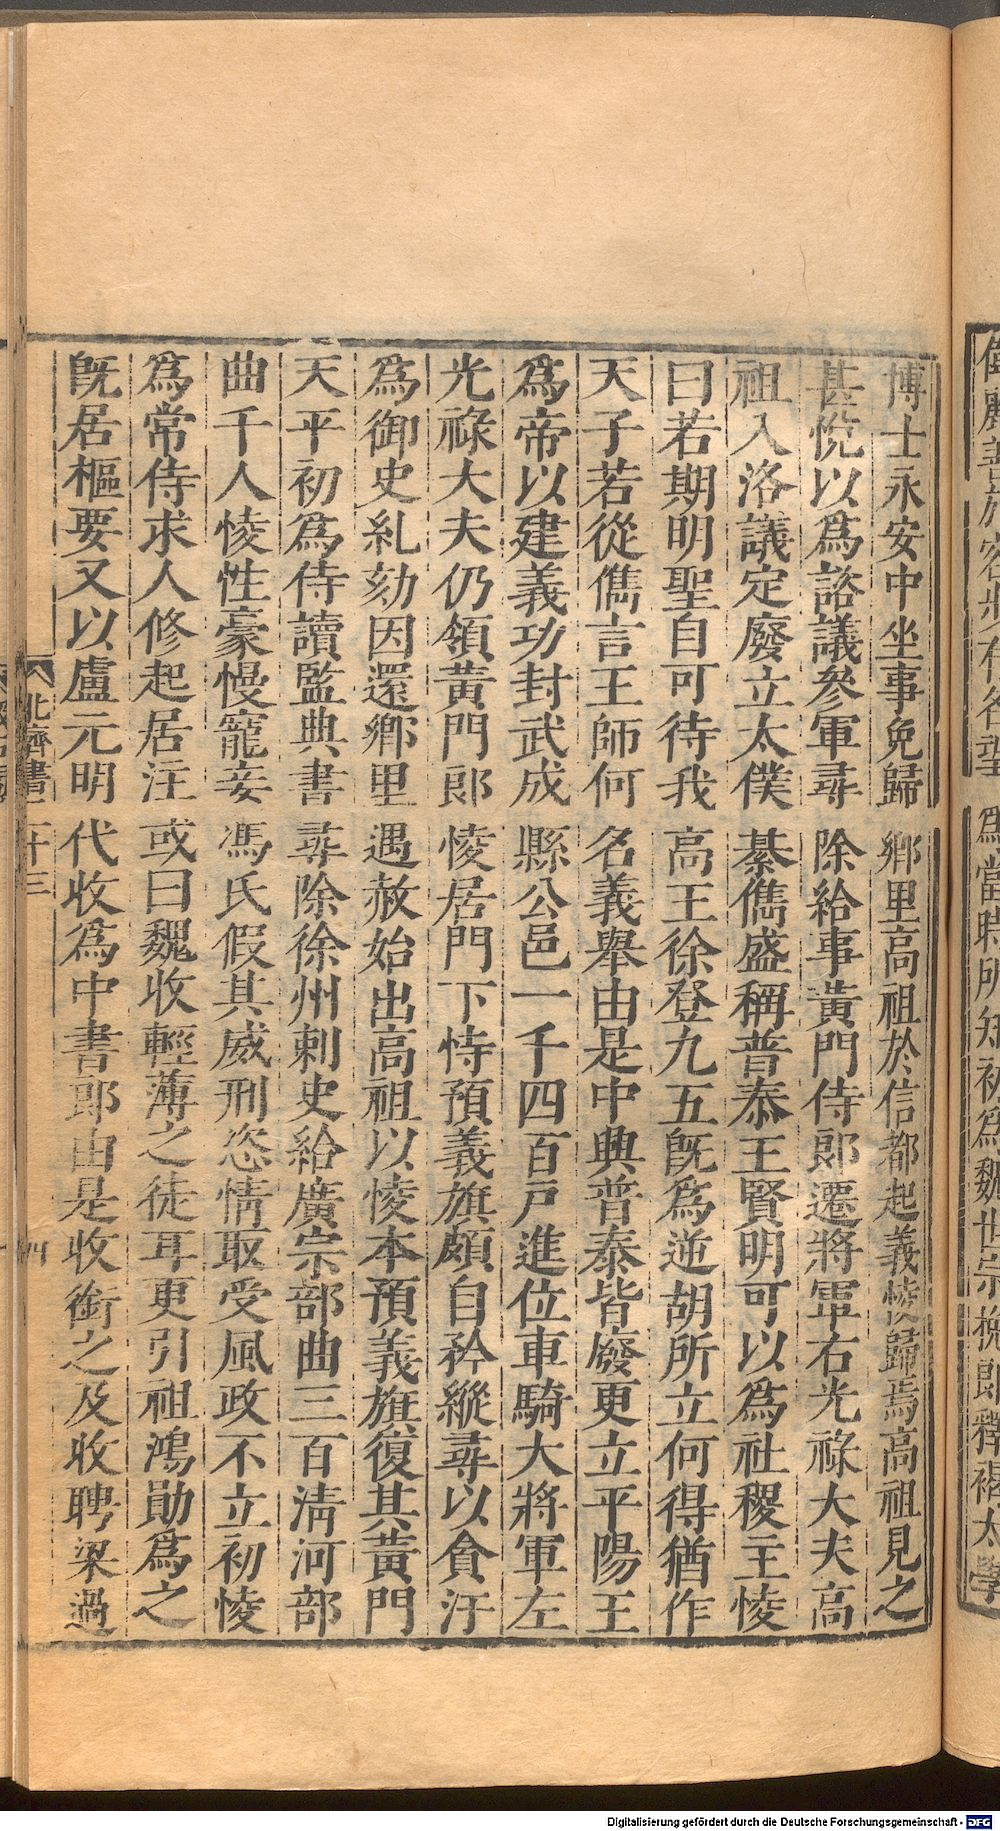 博士永安中坐事免歸鄉里高祖於信都起義㥄歸焉高祖見之
甚悅以爲諮議參軍尋除給事黃門侍郎遷將軍右光祿大夫高
祖入洛議定廢立太僕綦儁盛稱普泰王賢明可以爲社稷主㥄
曰若期明聖自可待我高王徐登九五旣爲逆胡所立何得猶作
天子若從儁言王師何名義舉由是中興普泰皆廢更立平陽王
爲帝以建義功封武成縣公邑一千四百戶進位車騎大將軍左
光祿大夫仍領黃門郎㥄居門下恃預義旗頗自矜縱尋以貪汙
爲御史糺劾因還鄉里遇赦始出高祖以㥄本預義旗復其黃門
天平初爲侍讀監典書尋除徐州刺史給廣宗部曲三百淸河部
曲千人㥄性豪慢寵妾馮氏假其威刑恣情取受風政不立初㥄
爲常侍求人修起居注或曰魏收輕薄之徒耳更引祖鴻勛爲之
旣居樞要又以盧元明代收爲中書郎由是收銜之及收聘梁過
北齊書二十三
四
爲當時所知初爲魏世宗挽郎釋褐太學
Digitalisierung gefördert durch die Deutsche Forschungsgemeinschaft - DFG